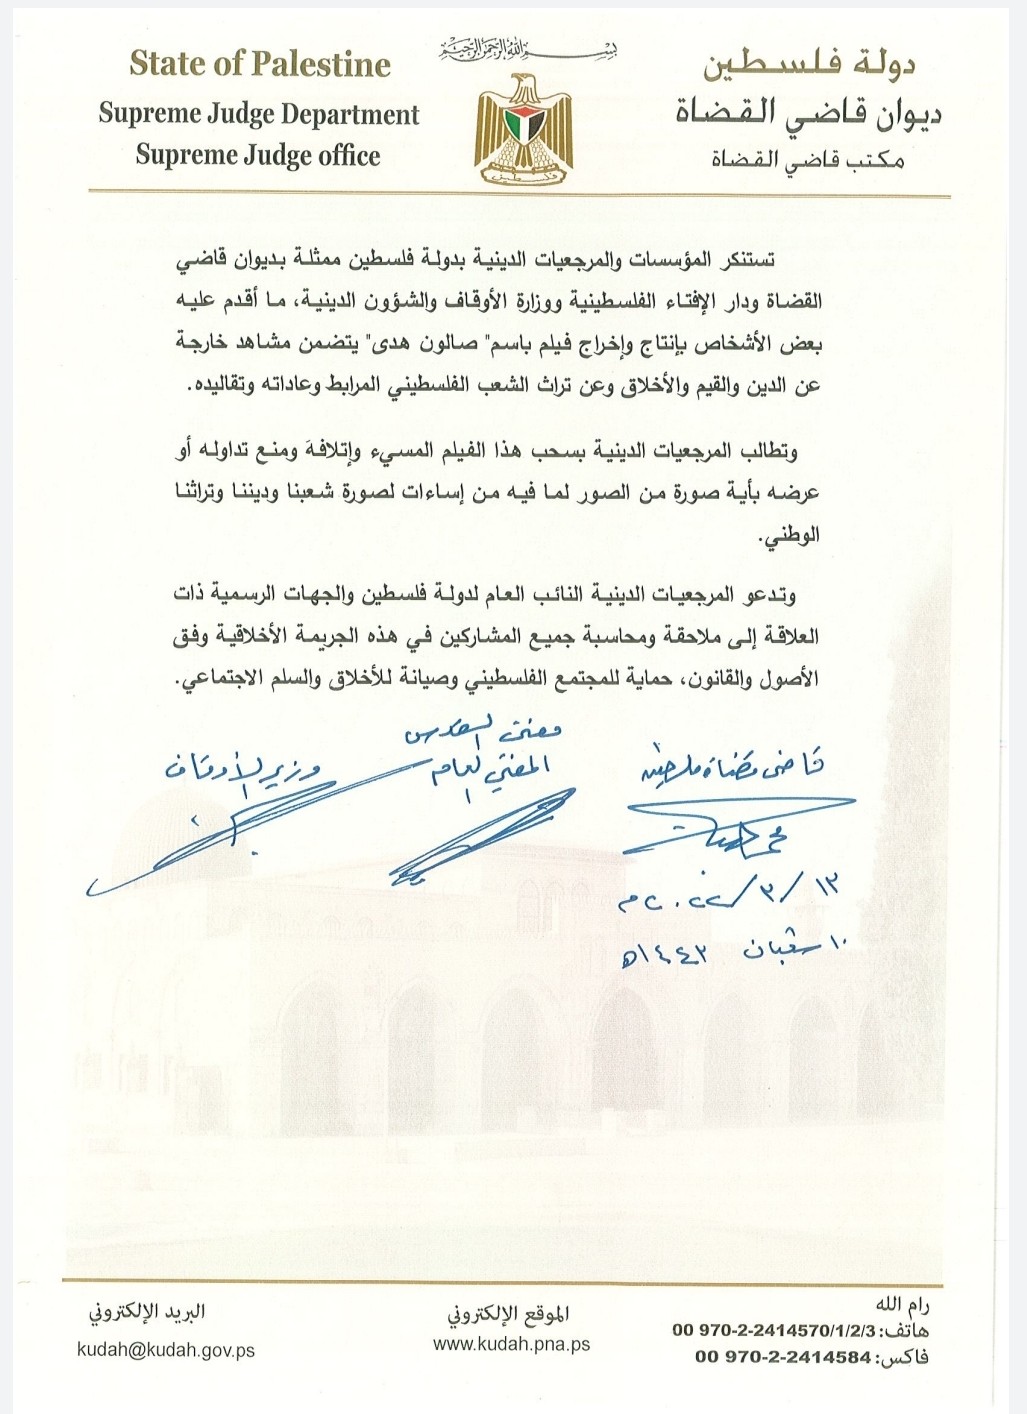 بسم الله الرحمن الرحيم
State of Palestine
Supreme Judge Department
Supreme Judge office
دولة فلسطين
ديوان قاضي القضاة
مكتب قاضي القضاة
فلسطين
تستنكر المؤسسات والمرجعيات الدينية بدولة فلسطين ممثلة بديوان قاضي
القضاة ودار الإفتاء الفلسطينية ووزارة الأوقاف والشؤون الدينية، ما أقدم عليه
بعض الأشخاص بإنتاج وإخراج فيلم باسم" صالون هدى" يتضمن مشاهد خارجة
عن الدين والقيم والأخلاق وعن تراث الشعب الفلسطيني المرابط وعاداته وتقاليده.
وتطالب المرجعيات الدينية بسحب هذا الفيلم المسيء وإتلافة ومنع تداوله أو
عرضه بأية صورة من الصور لما فيه من إساءات لصورة شعبنا وديننا وتراثنا
الوطني.
وتدعو المرجعيات الدينية النائب العام لدولة فلسطين والجهات الرسمية ذات
العلاقة إلى ملاحقة ومحاسبة جميع المشاركين في هذه الجريمة الأخلاقية وفق
الأصول والقانون، حماية للمجتمع الفلسطيني وصيانة للأخلاق والسلم الاجتماعي.
قاضي قضاة فلسطين
مفتي القدس
المفتي العام
وزير الأوقاف
١٣/٣/٢٠٢٢م
١٠ شعبان ١٤٤٣ه
رام الله
هاتف: 00 970-2-2414570/1/2/3
فاكس: 00 970-2-2414584
الموقع الإلكتروني
www.kudah.pna.ps
البريد الإلكتروني
kudah@kudah.gov.ps